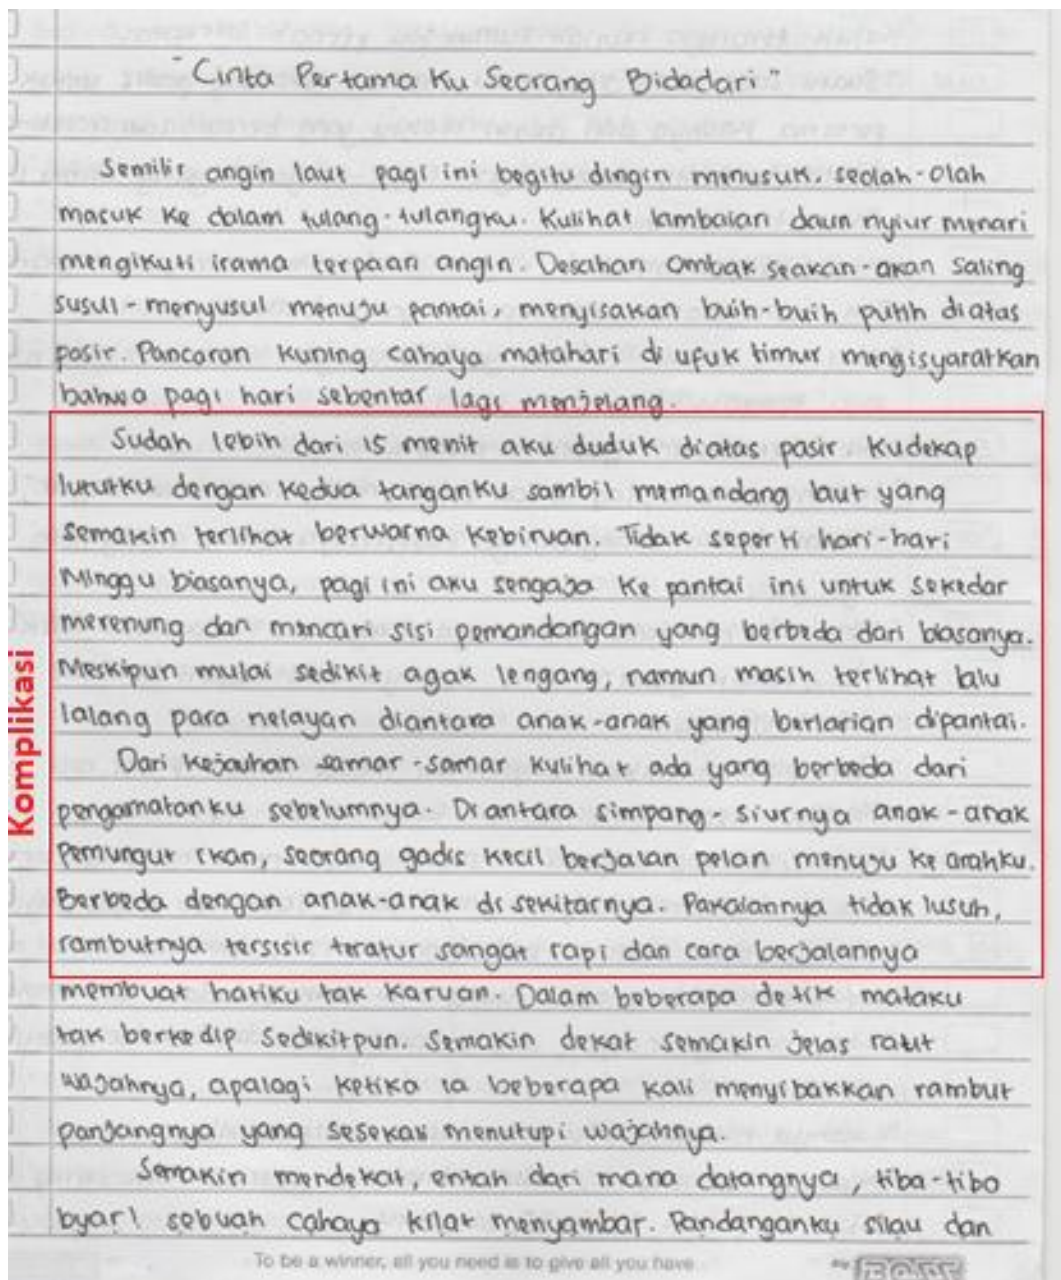 "Cinta Pertama Ku Seorang Bidadari"
Semilir angin laut pagi ini begitu dingin menusuk. seolah-olah
masuk ke dalam tulang-tulangku. Kulihat lambaian daun nyiur menari
mengikuti irama terpaan angin. Desahan ombak seakan-akan saling
susul-menyusul menuju pantai, menyisakan buih-buih putih diatas
pasir. Pancaran kuning cahaya matahari di ufuk timur mengisyaratkan
bahwa pagi hari sebentar lagi menjelang.
Sudah lebih dari 15 menit aku duduk diatas pasir Kudekap
lututku dengan kedua tanganku sambil memandang laut yang
semakin terlihat berwarna kebiruan. Tidak seperti hari-hari
Minggu biasanya, pagi ini aku sengaja ke pantai ini untuk sekedar
merenung dan mencari sisi pemandangan yang berbeda dari biasanya.
Meskipun mulai sedikit agak lengang, namun masih terlihat lalu
lalang para nelayan diantara anak-anak yang berlarian dipantai.
Komplikasi
Dari kejauhan samar-samar kulihat ada yang berbeda dari
pengamatanku sebelumnya. Diantara simpang-siurnya anak-anak
Pemungut ikan, seorang gadis kecil berjalan pelan menuju ke arahku.
Berbeda dengan anak-anak di sekitarnya. Pakaiannya tidak lusuh,
rambutnya tersisir teratur sangat rapi dan cara berjalannya
membuat hatiku tak karuan. Dalam beberapa detik mataku
tak berkedip sedikitpun. Semakin dekat semakin jelas raut
wajahnya, apalagi ketika ia beberapa kali menyibakkan rambut
panjangnya yang sesekali menutupi wajahnya.
Semakin mendekat, entah dari mana datangnya, tiba-tiba
byar! sebuah cahaya kilat menyambar. Pandanganku silau dan
To be a winner, all you need is to give all you have